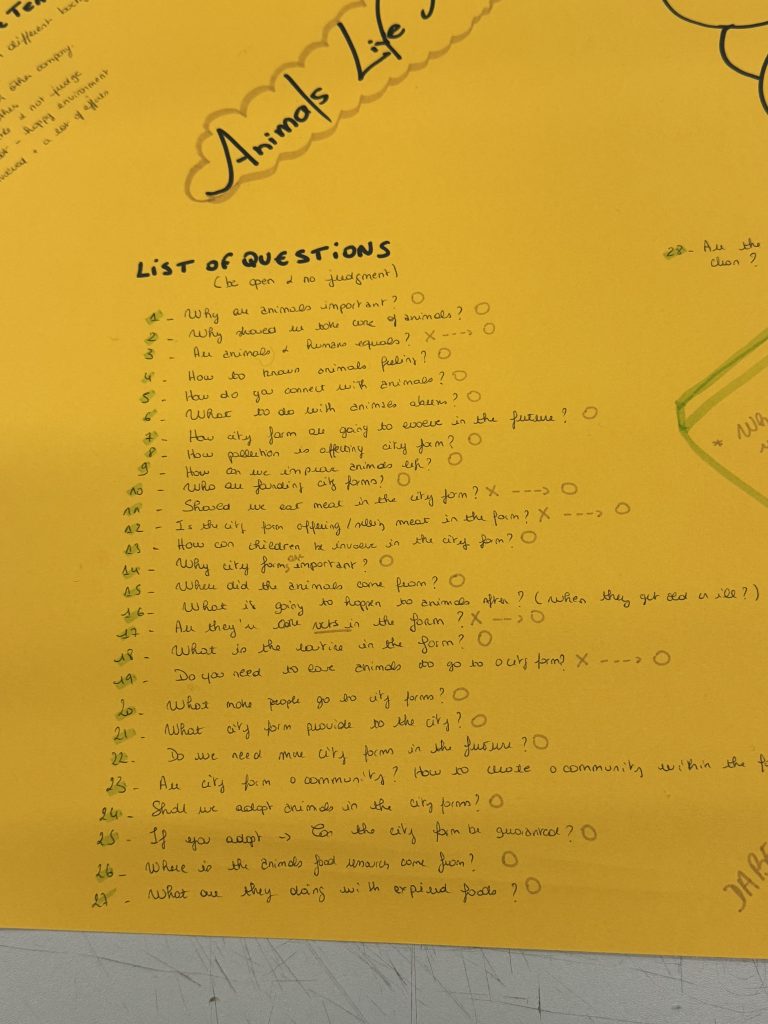 different
other company
& not judge
- happy environment
+ a lot of efforts
Animals Life
LIST OF QUESTIONS
(be open & no judgment)
1 - Why are animals important? O
2 - Why should we take care of animals? O
3 - Are animals & humans equals? X ---> O
4 - How to known animals feeling? O
5 - How do you connect with animals? O
6 - What to do with animals abuses? O
7 - How city farm are going to evolve in the future? O
8 - How pollection is affecting city farm? O
9 - How can we improve animals life? O
10 - Who are funding city farms? O
11 - Should we eat meat in the city farm? X ---> O
12 - Is the city farm offering/selling meat in the farm? X ---> O
13 - How can children be involve in the city farm? O
14 - Why city farms are important? O
15 - Where did the animals come from? O
16 - What is going to happen to animals after? (when they get old or ill?)
17 - Are they're vets in the farm? X --> O
18 - What is the routine in the farm? O
19 - Do you need to love animals to go to a city farm? X ---> O
20 - What make people go to city farms? O
21 - What city farm provide to the city? O
22 - Do we need more city farms in the future? O
23 - Are city farm a community? How to create a community within the
24 - Shall we adopt animals in the city farms? O
25 - If you adopt -> Can the city farm be guaranteed? O
26 - Where is the animals food resources come from? O
27 - What are they doing with expired foods? O
28 - Are the
clean?
*